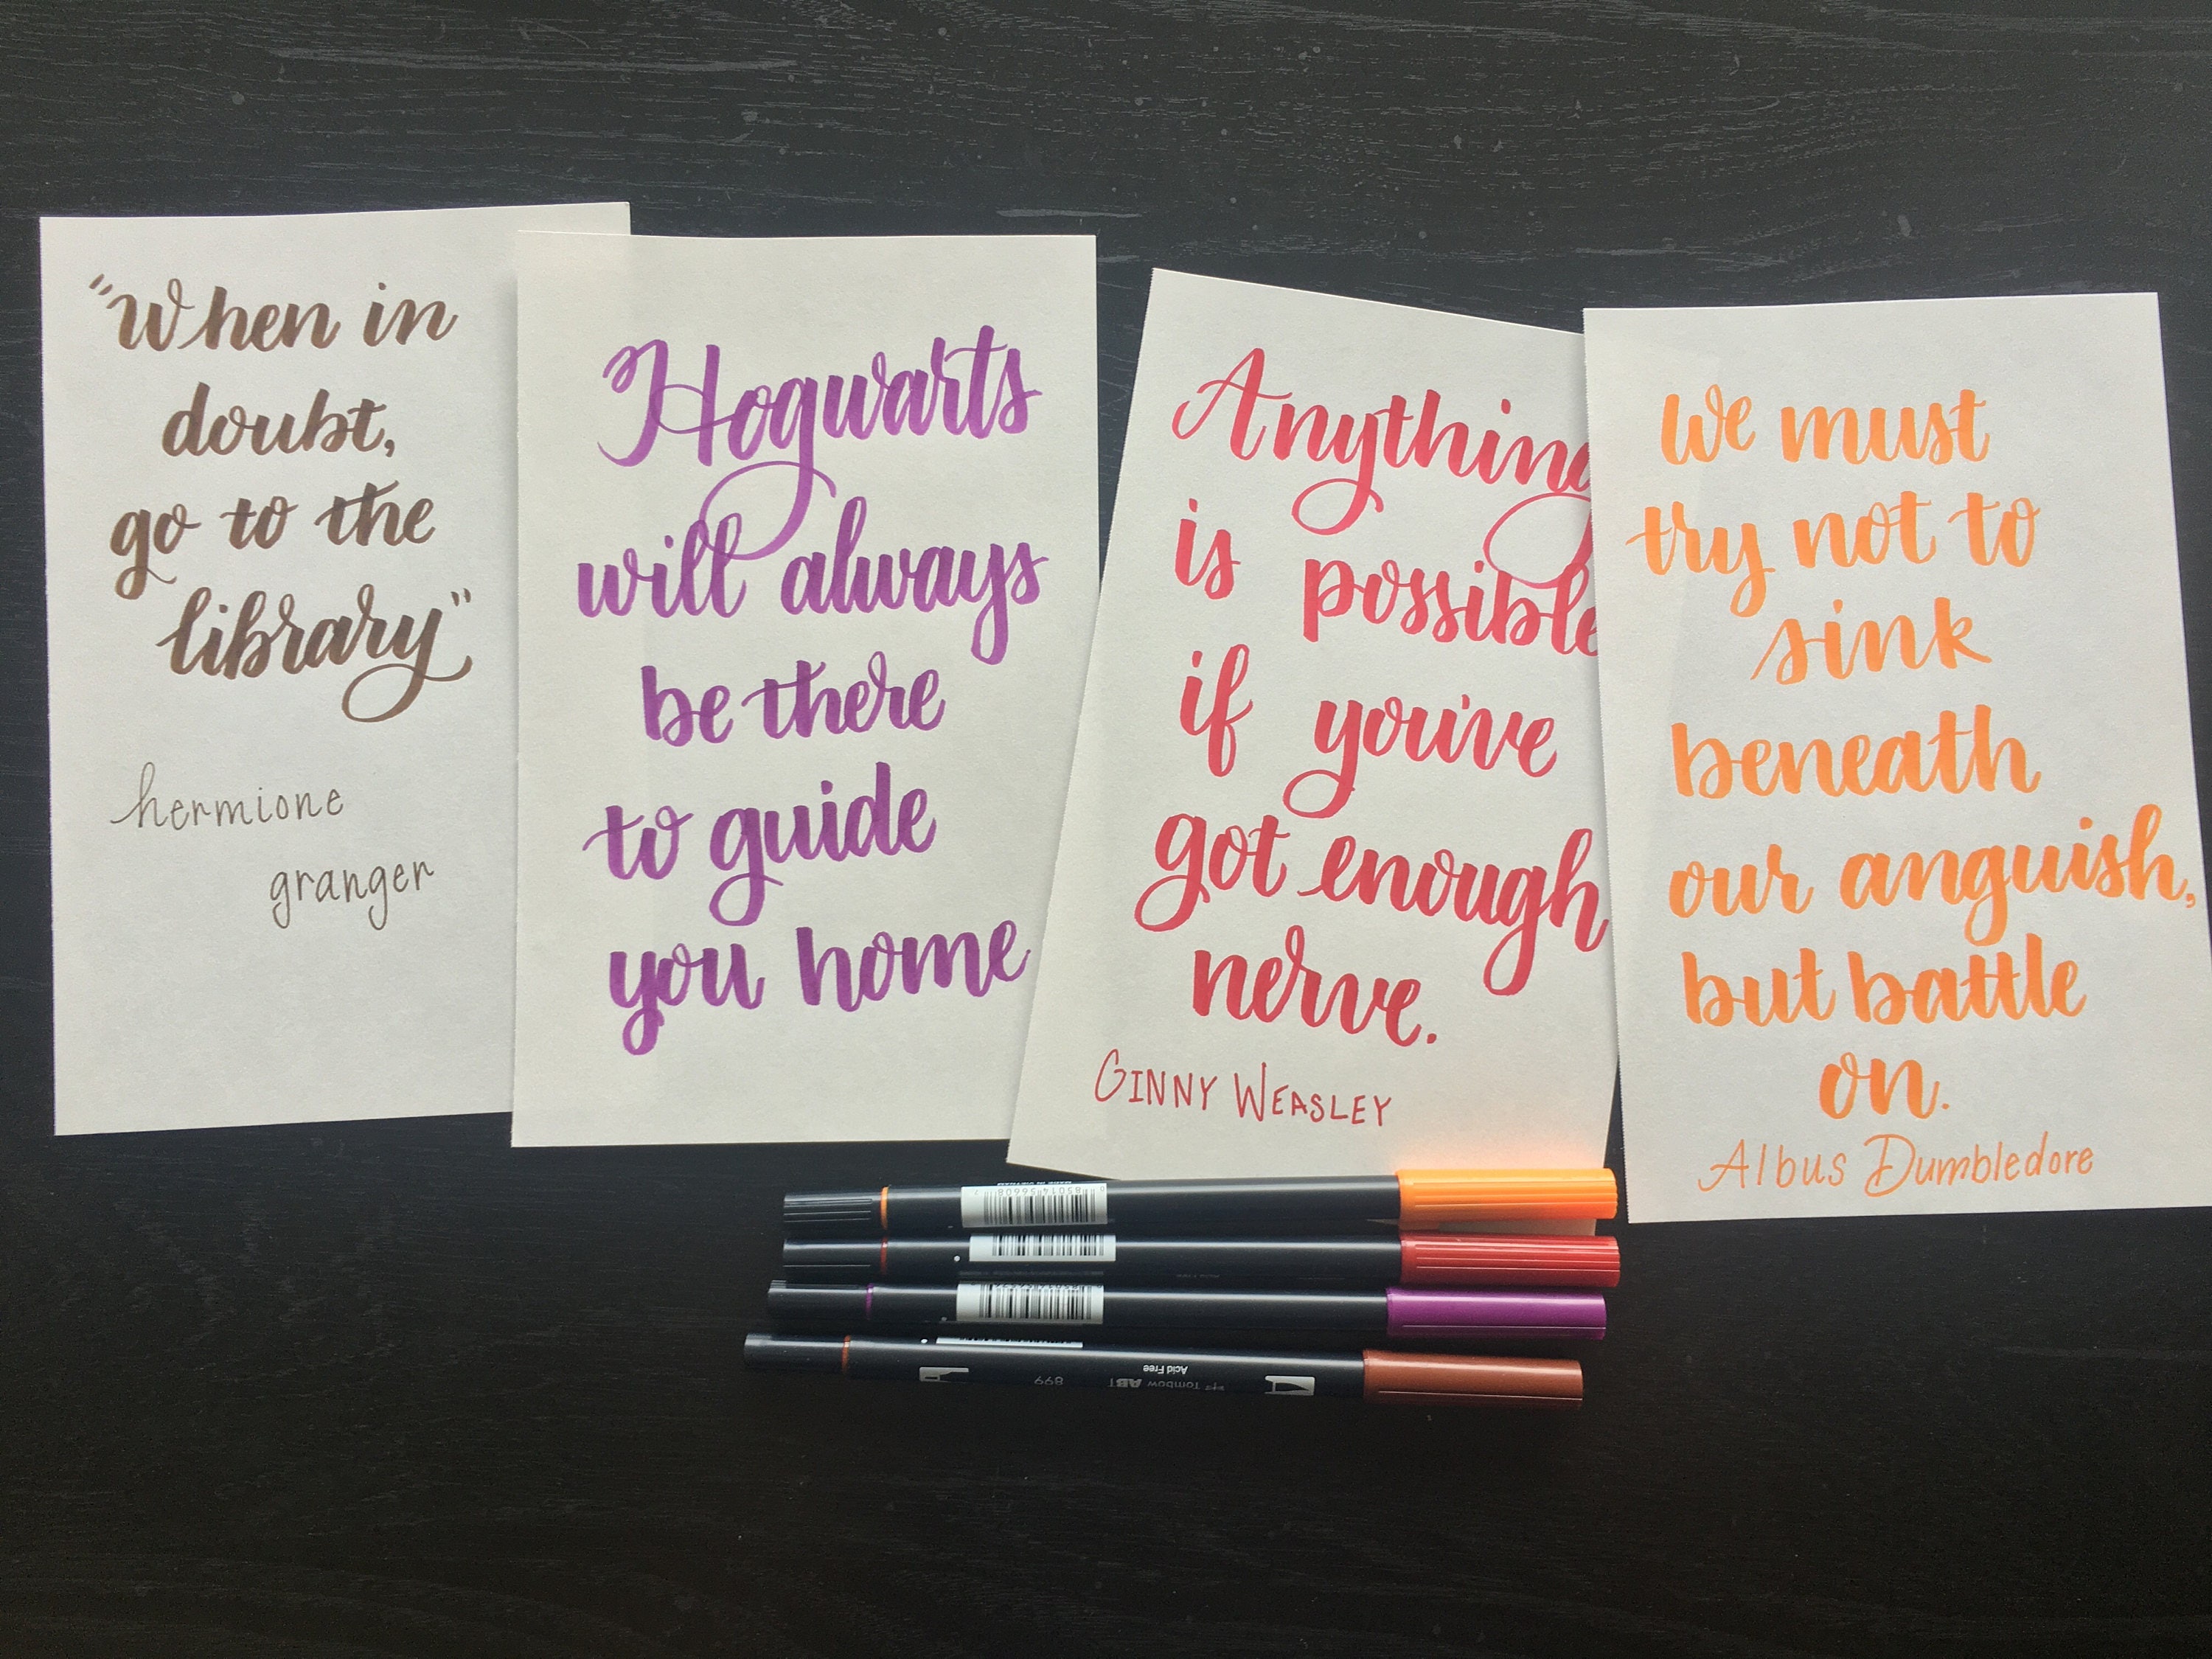 "When in
doubt,
go to the
library"
hermione
granger
Hogwarts
will always
be there
to guide
you home
Anything
is possible
if you've
got enough
nerve.
GINNY WEASLEY
We must
try not to
sink
beneath
our anguish,
but battle
on.
Albus Dumbledore
Acid Free
Tombow ABT
899